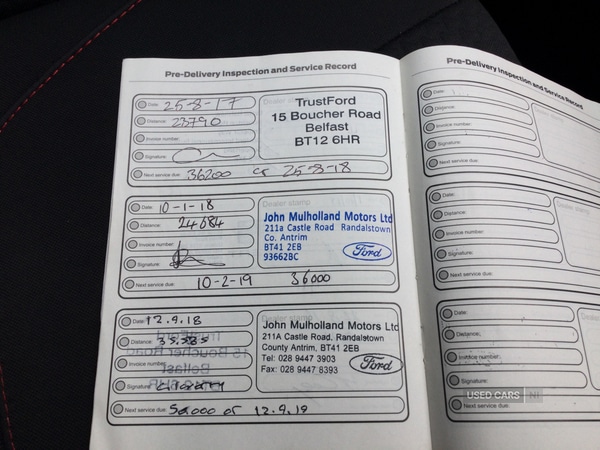 Pre-Delivery Inspection and Service Record
Date: 25-8-17
Distance: 23790
Invoice number:
Signature:
Next service due: 36200 or 25-8-18
Dealer stamp
TrustFord
15 Boucher Road
Belfast
BT12 6HR
Date: 10-1-18
Distance: 24684
Invoice number:
Signature:
Next service due: 10-2-19 36000
Dealer stamp
John Mulholland Motors Ltd
211a Castle Road Randalstown
Co. Antrim
BT41 2EB
93662BC
Ford
Date: 12.9.18
Distance: 35,585
Invoice number:
Signature:
Next service due: 50,000 or 12.9.19
Dealer stamp
John Mulholland Motors Ltd
211A Castle Road, Randalstown
County Antrim, BT41 2EB
Tel: 028 9447 3903
Fax: 028 9447 8393
Ford
Pre-Delivery Inspection and Service Record
Date:
Distance:
Invoice number:
Signature:
Next service due:
Date:
Distance:
Invoice number:
Signature:
Next service due:
Date:
Distance:
Invoice number:
Signature:
Next service due:
USED CARS NI